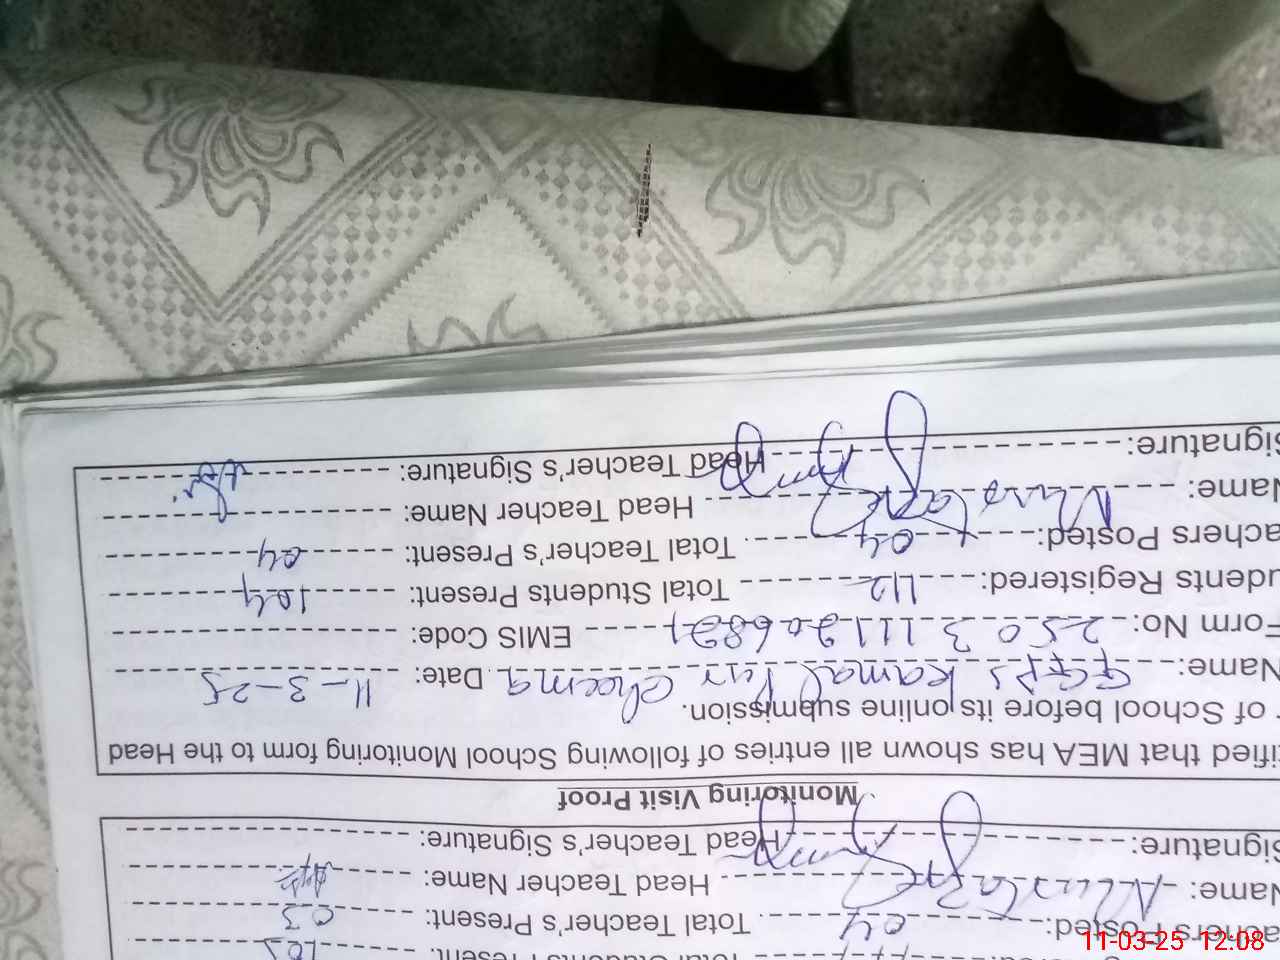 Monitoring Visit Proof
ified that MEA has shown all entries of following School Monitoring form to the Head
of School before its online submission.
Name: GGPS Kamal Pur Cheema Date: 11-3-25
Form No: 25031111206821 EMIS Code:
udents Registered: 112 Total Students Present: 104
achers Posted: 04 Total Teacher's Present: 04
Name: Head Teacher Name:
Signature: Head Teacher's Signature:
Total Students Present:
achers Posted: 04 Total Teacher's Present: 03
Name: Head Teacher Name:
Signature: Head Teacher's Signature:
11-03-25 12:08